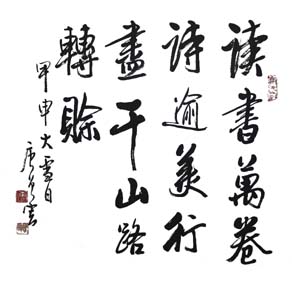 读書萬卷
诗逾美行
盡千山路
轉賒
甲申大雪日